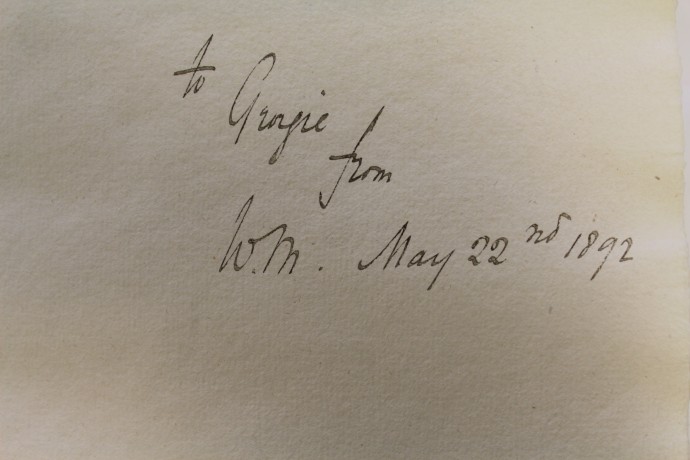 to
Georgie
from
W.M. May 22nd 1892